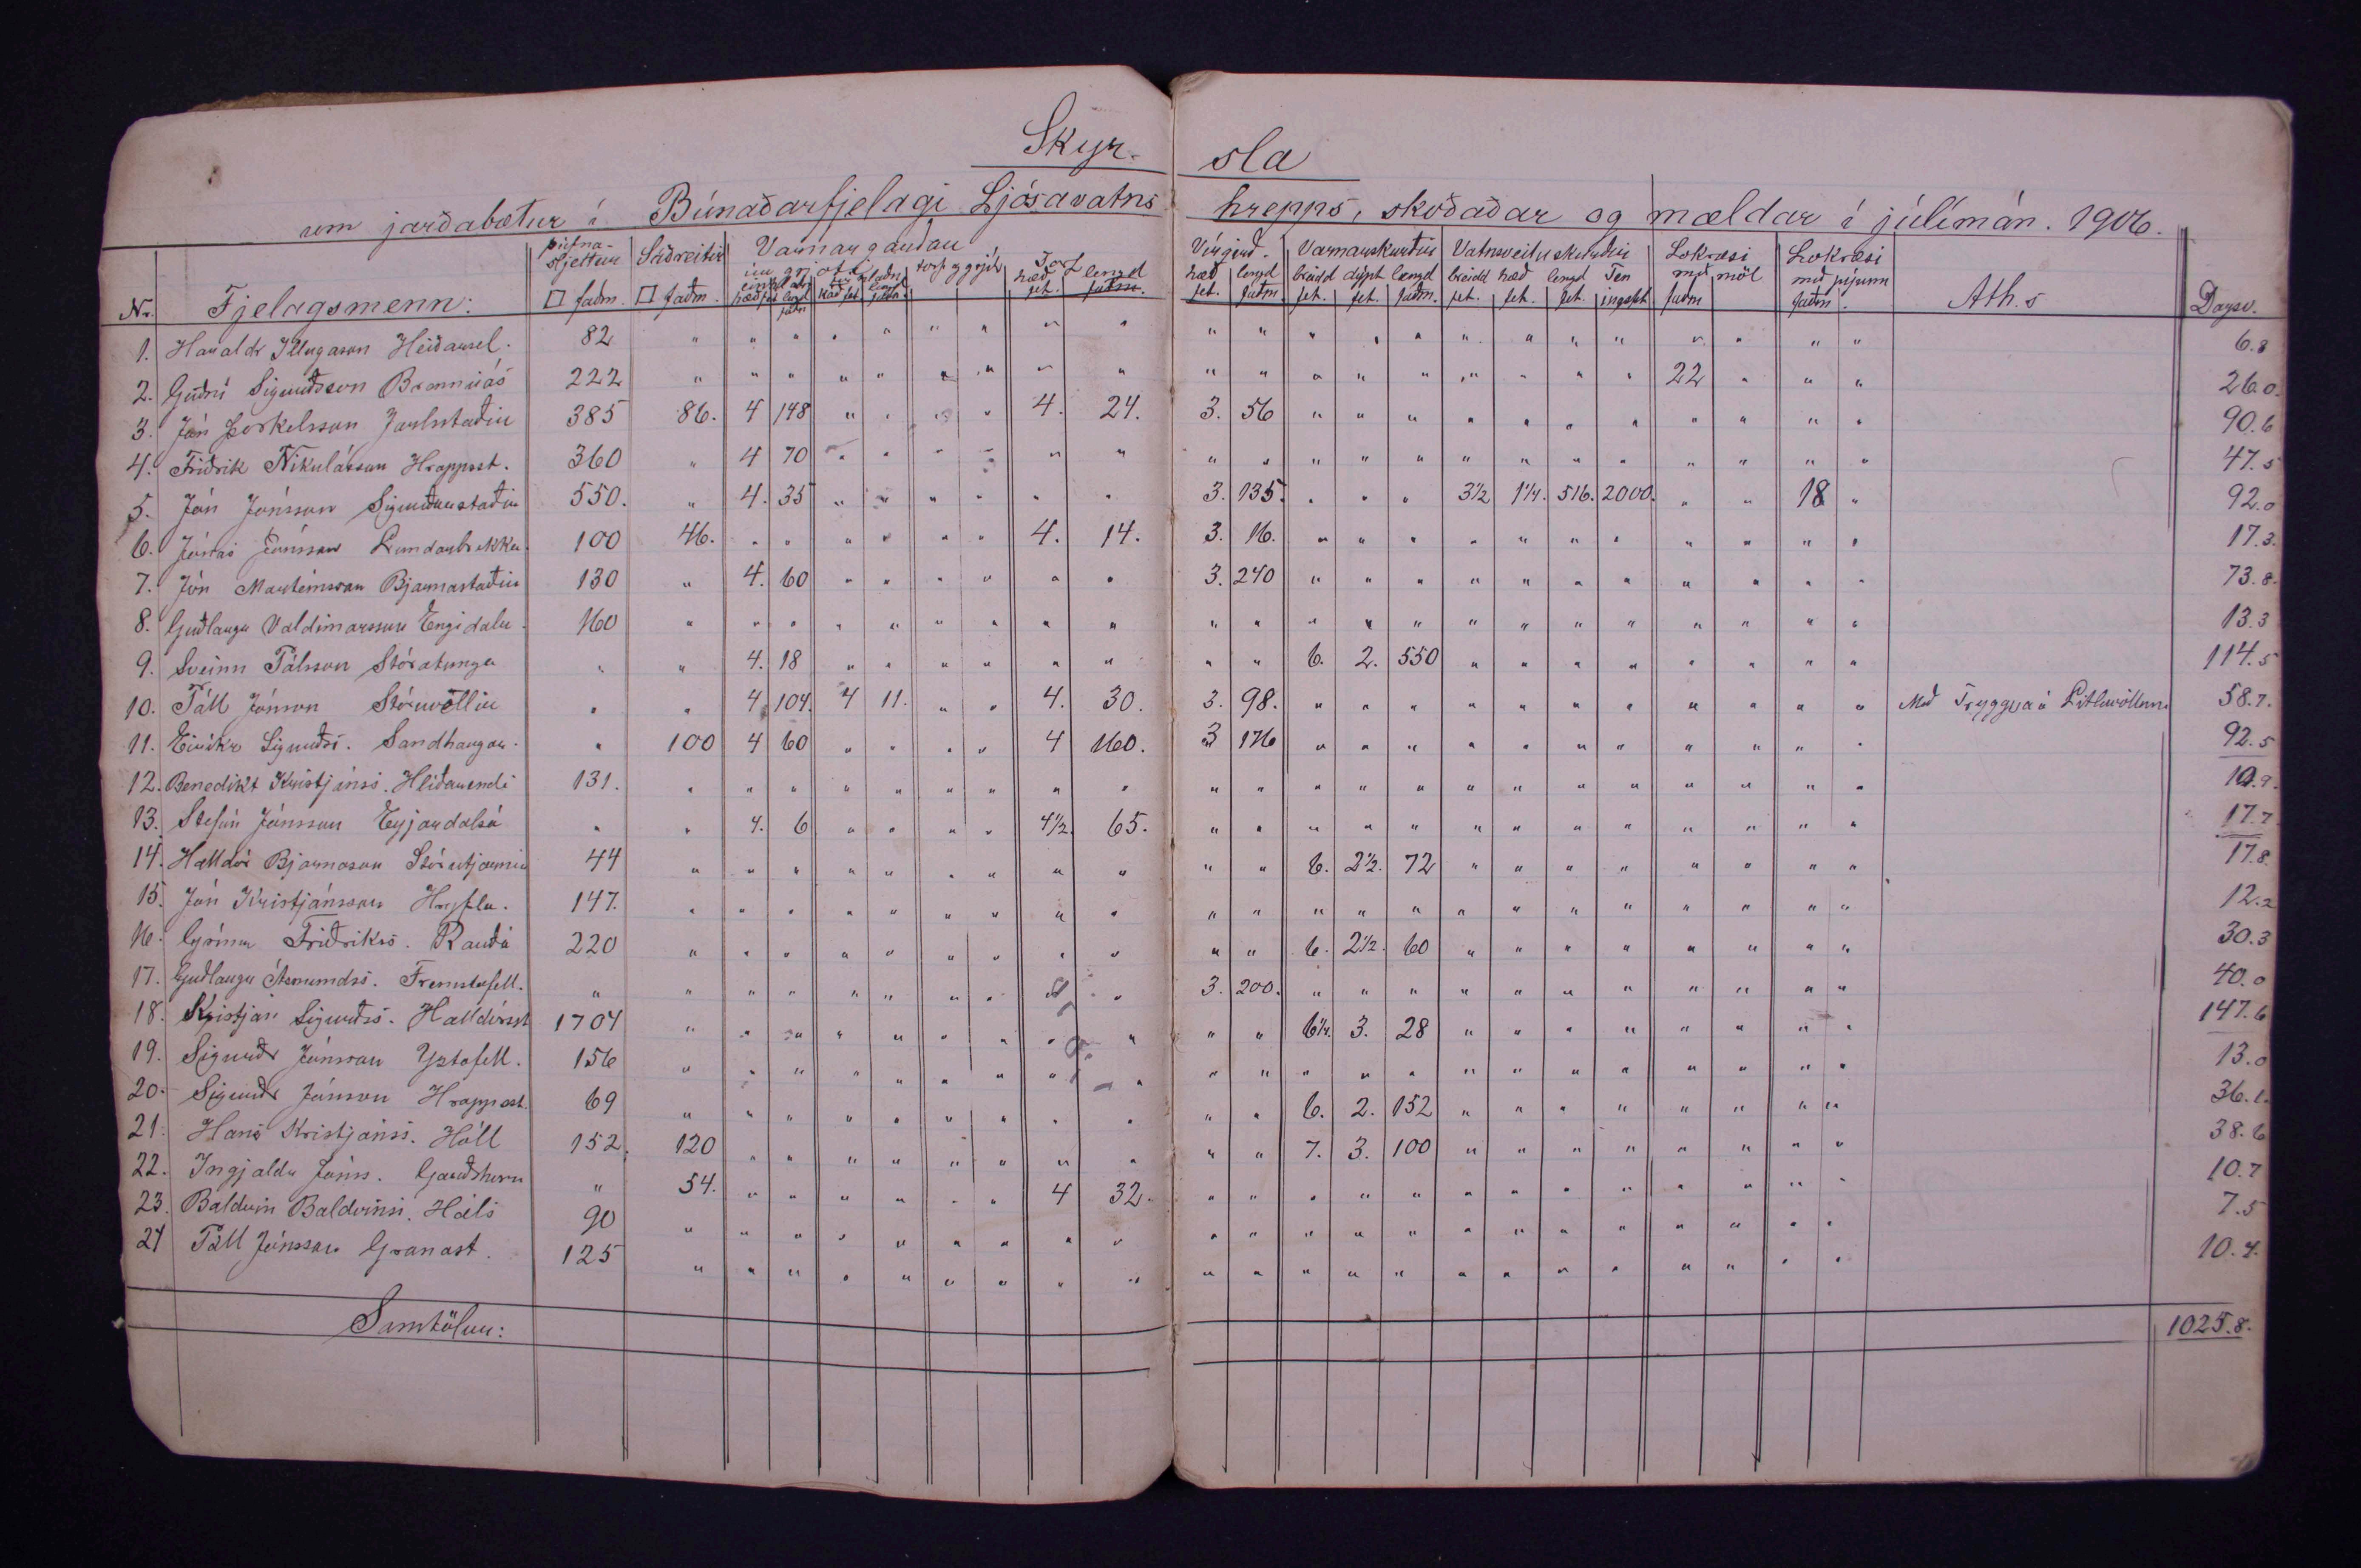 Skyr- sla
um jarðabætur í Búnaðarfjelagi Ljósavatns hrepps, skoðaðar og mældar í júlímán. 1906.
Nr. Fjelagsmenn: þúfnasljettur □ faðm. Sáðreitir □ faðm. Varnargarðar úr grjóti einhlaðn hæð fet lengd faðm tvíhlaðn hæð fet lengd faðm torf og grjót Torf hæð fet. lengd faðm. Vírgirð. hæð fet. lengd faðm. Varnarskurðir breidd fet. dýpt fet. lengd faðm. Vatnsveitu skurðir breidd fet. hæð fet. lengd fet. Ten ingsfet Lokræsi með möl faðm Lokræsi með pípum faðm. Ath.s Dagsv.
1. Haraldr Illugason Heiðarsel. 82 " " " " " " " " " " " " " " " " " " " " " " 6.8
2. Guðni Sigurðsson Brenniás 222 " " " " " " " " " " " " " " " " " " 22 " " " 26.0.
3. Jón Þorkelsson Jarlsstaðir 385 86. 4 148 " " " " 4. 24. 3. 56 " " " " " " " " " " " 90.6
4. Friðrik Nikulásson Hrappst. 360 " 4 70 " " " " " " " " " " " " " " " " " " " 47.5
5. Jón Jónsson Sigurðarstaðir 550. " 4. 35 " " " " " " 3. 135. " " " 3½ 1¼. 516. 2000. " " 18 " 92.0
6. Jónas Jónsson Lundarbrekka 100 46. " " " " " " 4. 14. 3. 16. " " " " " " " " " " " 17.3.
7. Jón Marteinsson Bjarnastaðir 130 " 4. 60 " " " " " " 3. 240 " " " " " " " " " " " 73.8.
8. Guðlaugr Valdimarsson Engidalr. 160 " " " " " " " " " " " " " " " " " " " " " " 13.3
9. Sveinn Pálsson Stóratunga " " 4. 18 " " " " " " " " 6. 2. 550 " " " " " " " " 114.5
10. Páll Jónsson Stóruvöllir " " 4 104. 4 11. " " 4. 30. 3. 98. " " " " " " " " " " " Með Tryggva á Litluvöllum 58.7.
11. Eiríkr Sigurðss. Sandhaugar. " 100 4 60 " " " " 4 160. 3 176 " " " " " " " " " " " 92.5
12. Benedikt Kristjánss. Hlíðarendi 131. " " " " " " " " " " " " " " " " " " " " " " 10.9.
13. Stefán Jónsson Eyjardalsá " " 4. 6 " " " " 4½. 65. " " " " " " " " " " " " " 17.7
14. Halldór Bjarnason Stórutjarnir 44 " " " " " " " " " " " 6. 2½. 72 " " " " " " " " 17.8.
15. Jón Kristjánsson Hryfla. 147. " " " " " " " " " " " " " " " " " " " " " " 12.2
16. Grímur Friðrikss. Rauðá 220 " " " " " " " " " " " 6. 2½. 60 " " " " " " " " 30.3
17. Guðlaugr Ásmundss. Fremstafell. " " " " " " " " " " 3. 200. " " " " " " " " " " " 40.0
18. Kristján Sigurðss. Halldórsst 1704 " " " " " " " " " " " 6¼. 3. 28 " " " " " " " " 147.6
19. Sigurðr Jónsson Yztafell. 156 " " " " " " " " " " " " " " " " " " " " " " 13.0
20. Sigurðr Jónsson Hrappsst. 69 " " " " " " " " " " " 6. 2. 152 " " " " " " " " 36.1.
21. Hans Kristjánss. Hóll 152. 120 " " " " " " " " " " 7. 3. 100 " " " " " " " " 38.6
22. Ingjaldr Jónss. Garðshorn " 54. " " " " " " 4 32. " " " " " " " " " " " " " 10.7
23. Baldvin Baldvinss. Háls 90 " " " " " " " " " " " " " " " " " " " " " " 7.5
24 Páll Jónsson Granast. 125 " " " " " " " " " " " " " " " " " " " " " " 10.4.
Samtölur: 1025.8.